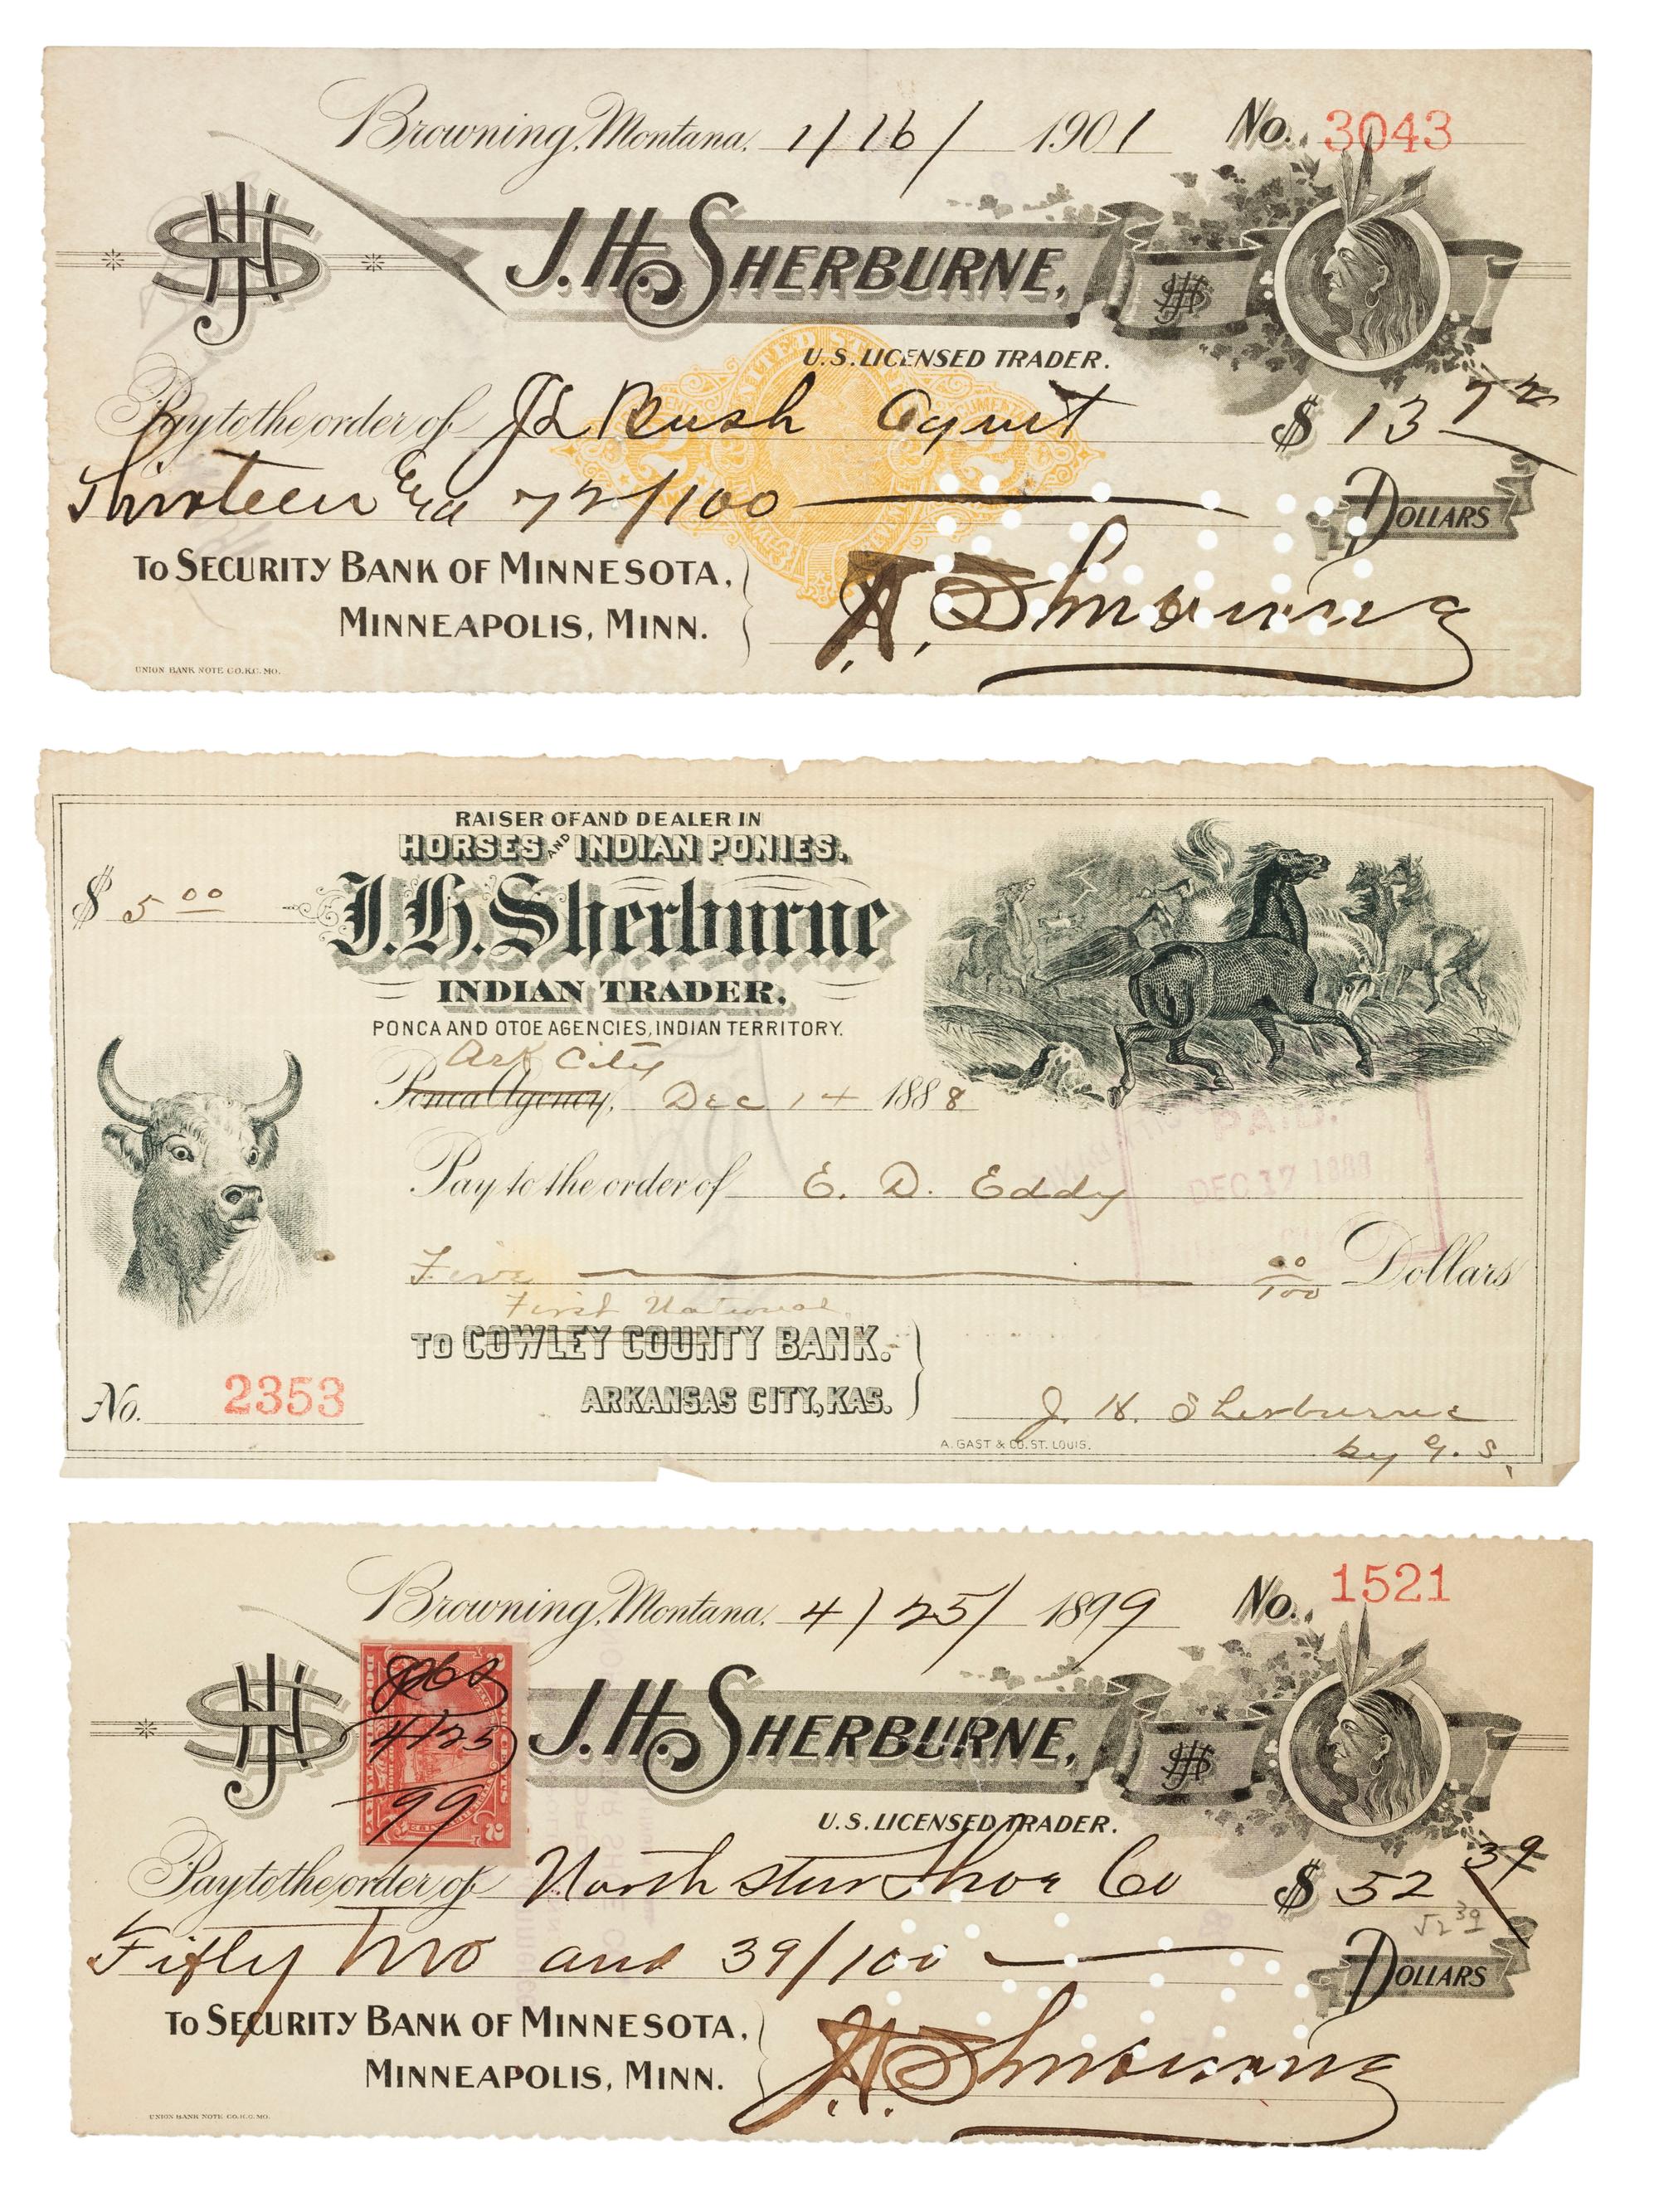 Browning, Montana. 1/16/ 1901 No. 3043
JHS
J. H. SHERBURNE,
JHS
U.S. LICENSED TRADER.
Pay to the order of Rush Agent $ 13 72
Thirteen 72/100 DOLLARS
TO SECURITY BANK OF MINNESOTA,
MINNEAPOLIS, MINN.
UNION BANK NOTE CO. K.C. MO.
RAISER OF AND DEALER IN
HORSES AND INDIAN PONIES.
$ 5 00
J. H. Sherburne
INDIAN TRADER.
PONCA AND OTOE AGENCIES, INDIAN TERRITORY.
Ark City
Ponca Agency, Dec 14 1888
PAID.
Pay to the order of E. D. Eddy
DEC 17 1888
Five 00/100 Dollars
First National
TO COWLEY COUNTY BANK.
ARKANSAS CITY, KAS.
No. 2353
J. H. Sherburne
by G. S.
A. GAST & CO. ST. LOUIS.
Browning, Montana. 4/25/ 1899 No. 1521
JHS
4/25
99
J. H. SHERBURNE,
JHS
U.S. LICENSED TRADER.
Pay to the order of North Star Shoe Co $ 52 39
52 39
Fifty Two and 39/100 DOLLARS
TO SECURITY BANK OF MINNESOTA,
MINNEAPOLIS, MINN.
UNION BANK NOTE CO. K.C. MO.